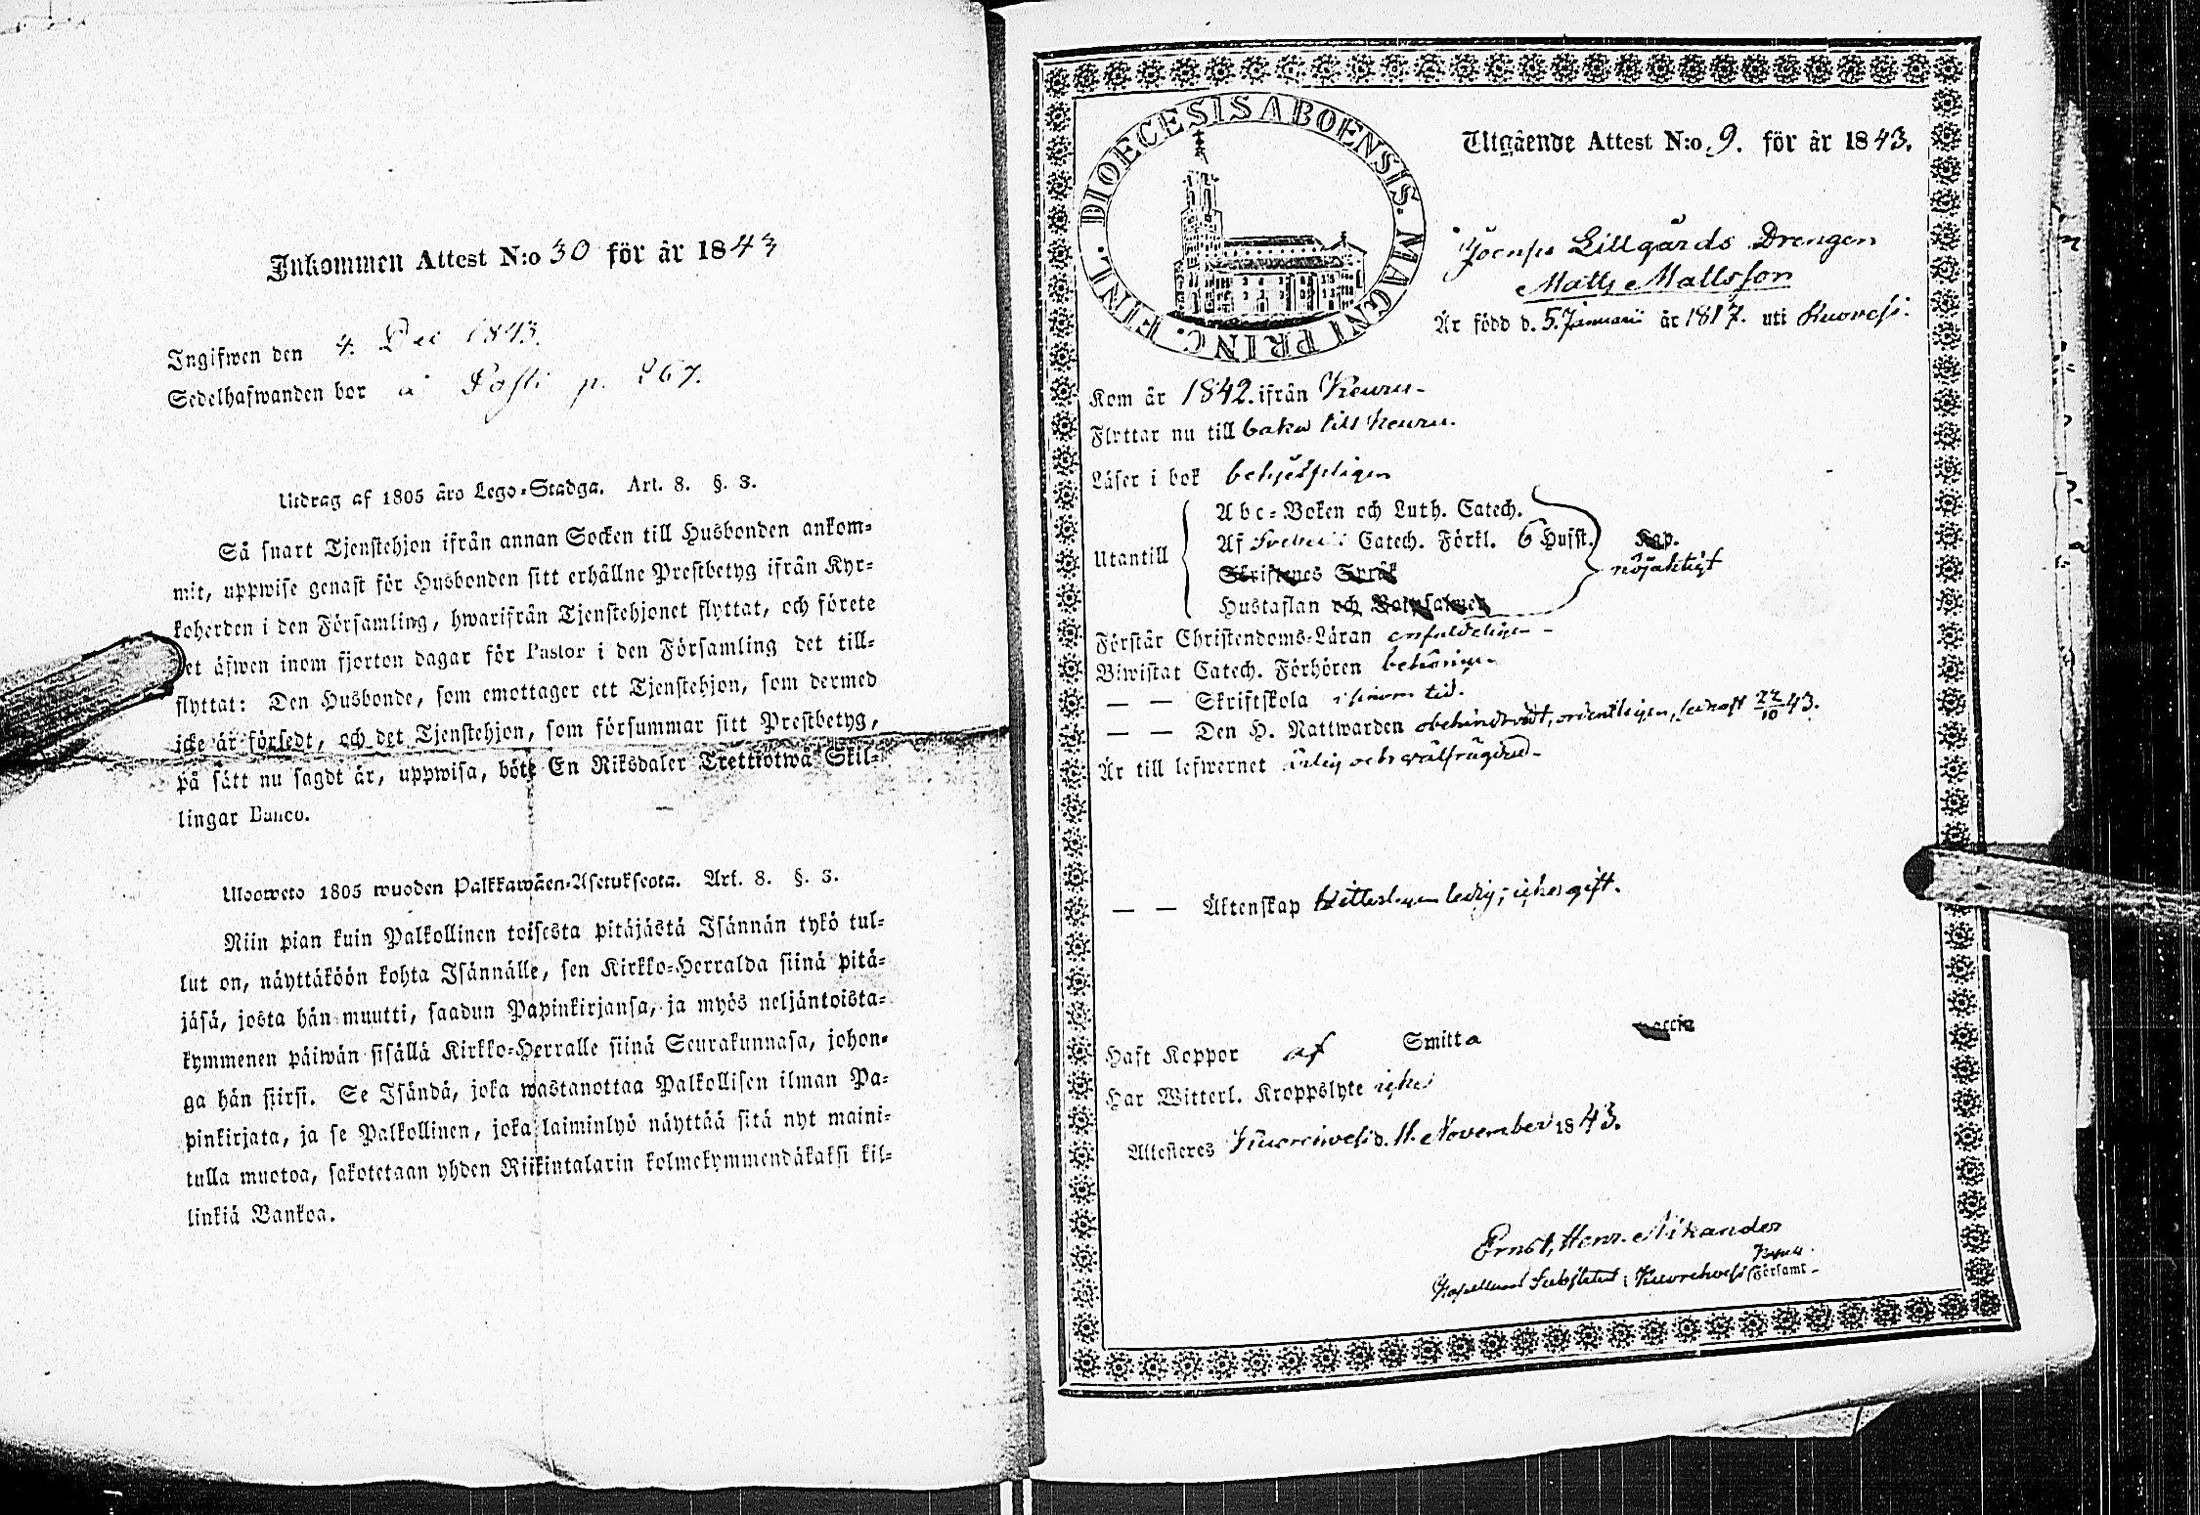 Inkommen Attest N:o 30 för år 1843
Ingifwen den 4. Dec 1843.
Sedelhafwanden bor å p. 267.
Utdrag af 1805 års Lego-Stadga. Art. 8. §. 3.
Så snart Tjenstehjon ifrån annan Socken till Husbonden ankom-
mit, uppwise genast för Husbonden sitt erhållne Prestbetyg ifrån Kyr-
koherden i den Församling, hwarifrån Tjenstehjonet flyttat, och förete
et äfwen inom fjorton dagar för Pastor i den Församling det till-
flyttat: Den Husbonde, som emottager ett Tjenstehjon, som dermed
icke är försedt, och det Tjenstehjon, som försummar sitt Prestbetyg,
på sätt nu sagdt är, uppwisa, böte En Riksdaler Trettiotwå Skil-
lingar Banco.
Ulosweto 1805 wuoden Palkkawäen-Asetuksesta. Art. 8. §. 3.
Niin pian kuin Palkollinen toisesta pitäjästä Isännän tykö tul-
lut on, näyttäköön kohta Isännälle, sen Kirkko-Herralda siinä pitä-
jäsä, josta hän muutti, saadun Papinkirjansa, ja myös neljäntoista-
kymmenen päiwän sisällä Kirkko-Herralle siinä Seurakunnasa, johon-
ga hän siirsi. Se Isändä, joka wastanottaa Palkollisen ilman Pa-
pinkirjata, ja se Palkollinen, joka laiminlyö näyttää sitä nyt maini-
tulla muotoa, sakotetaan yhden Riikintalarin kolmekymmendäkaksi kil-
linkiä Bankoa.
DIOECESIS ABOENSIS. MAGNI PRINC. FINL.
Utgående Attest N:o. 9. för år 1843.
Lillgårds Drengen
Matts Mattsson
Är född d. 5. Januarii år 1817. uti Ruovesi.
Kom år 1842. ifrån Keuru-
Flyttar nu till baka till Keuru.
Läser i bok behjelpligen
Utantill
Abc-Boken och Luth. Catech.
Af Catech. Förkl. 6 Hufst. Kap.
nöjaktigt
Skriftenes Språk
Hustaflan och
Förstår Christendoms-Läran enfaldeligen -
Biwistat Catech. Förhören
— — Skriftskola i sinom tid.
— — Den H. Nattwarden obehindradt, ordentligen, senast 22/10 43.
Är till lefwernet ärlig och wälfrägdad -
— — Äktenskap ledig; icke gift.
Haft Koppor af Smitta
Har Witterl. Kroppslyte icke
Attesteres Kuorewesi d. 11. November 1843.
Ernst. Henr. Nikander
i Kuorehwesi Församl -